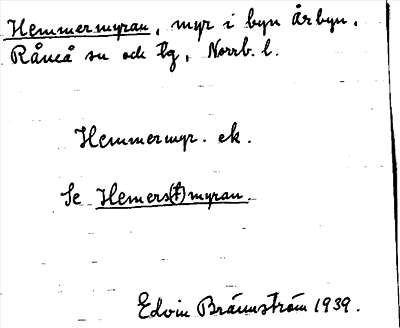 Hemmermyran, myr i byn Årbyn.
Råneå sn och tg, Norrb. l.
Hemmermyr. ek.
Se Hemers(t)myran.
Edvin Brännström 1939.